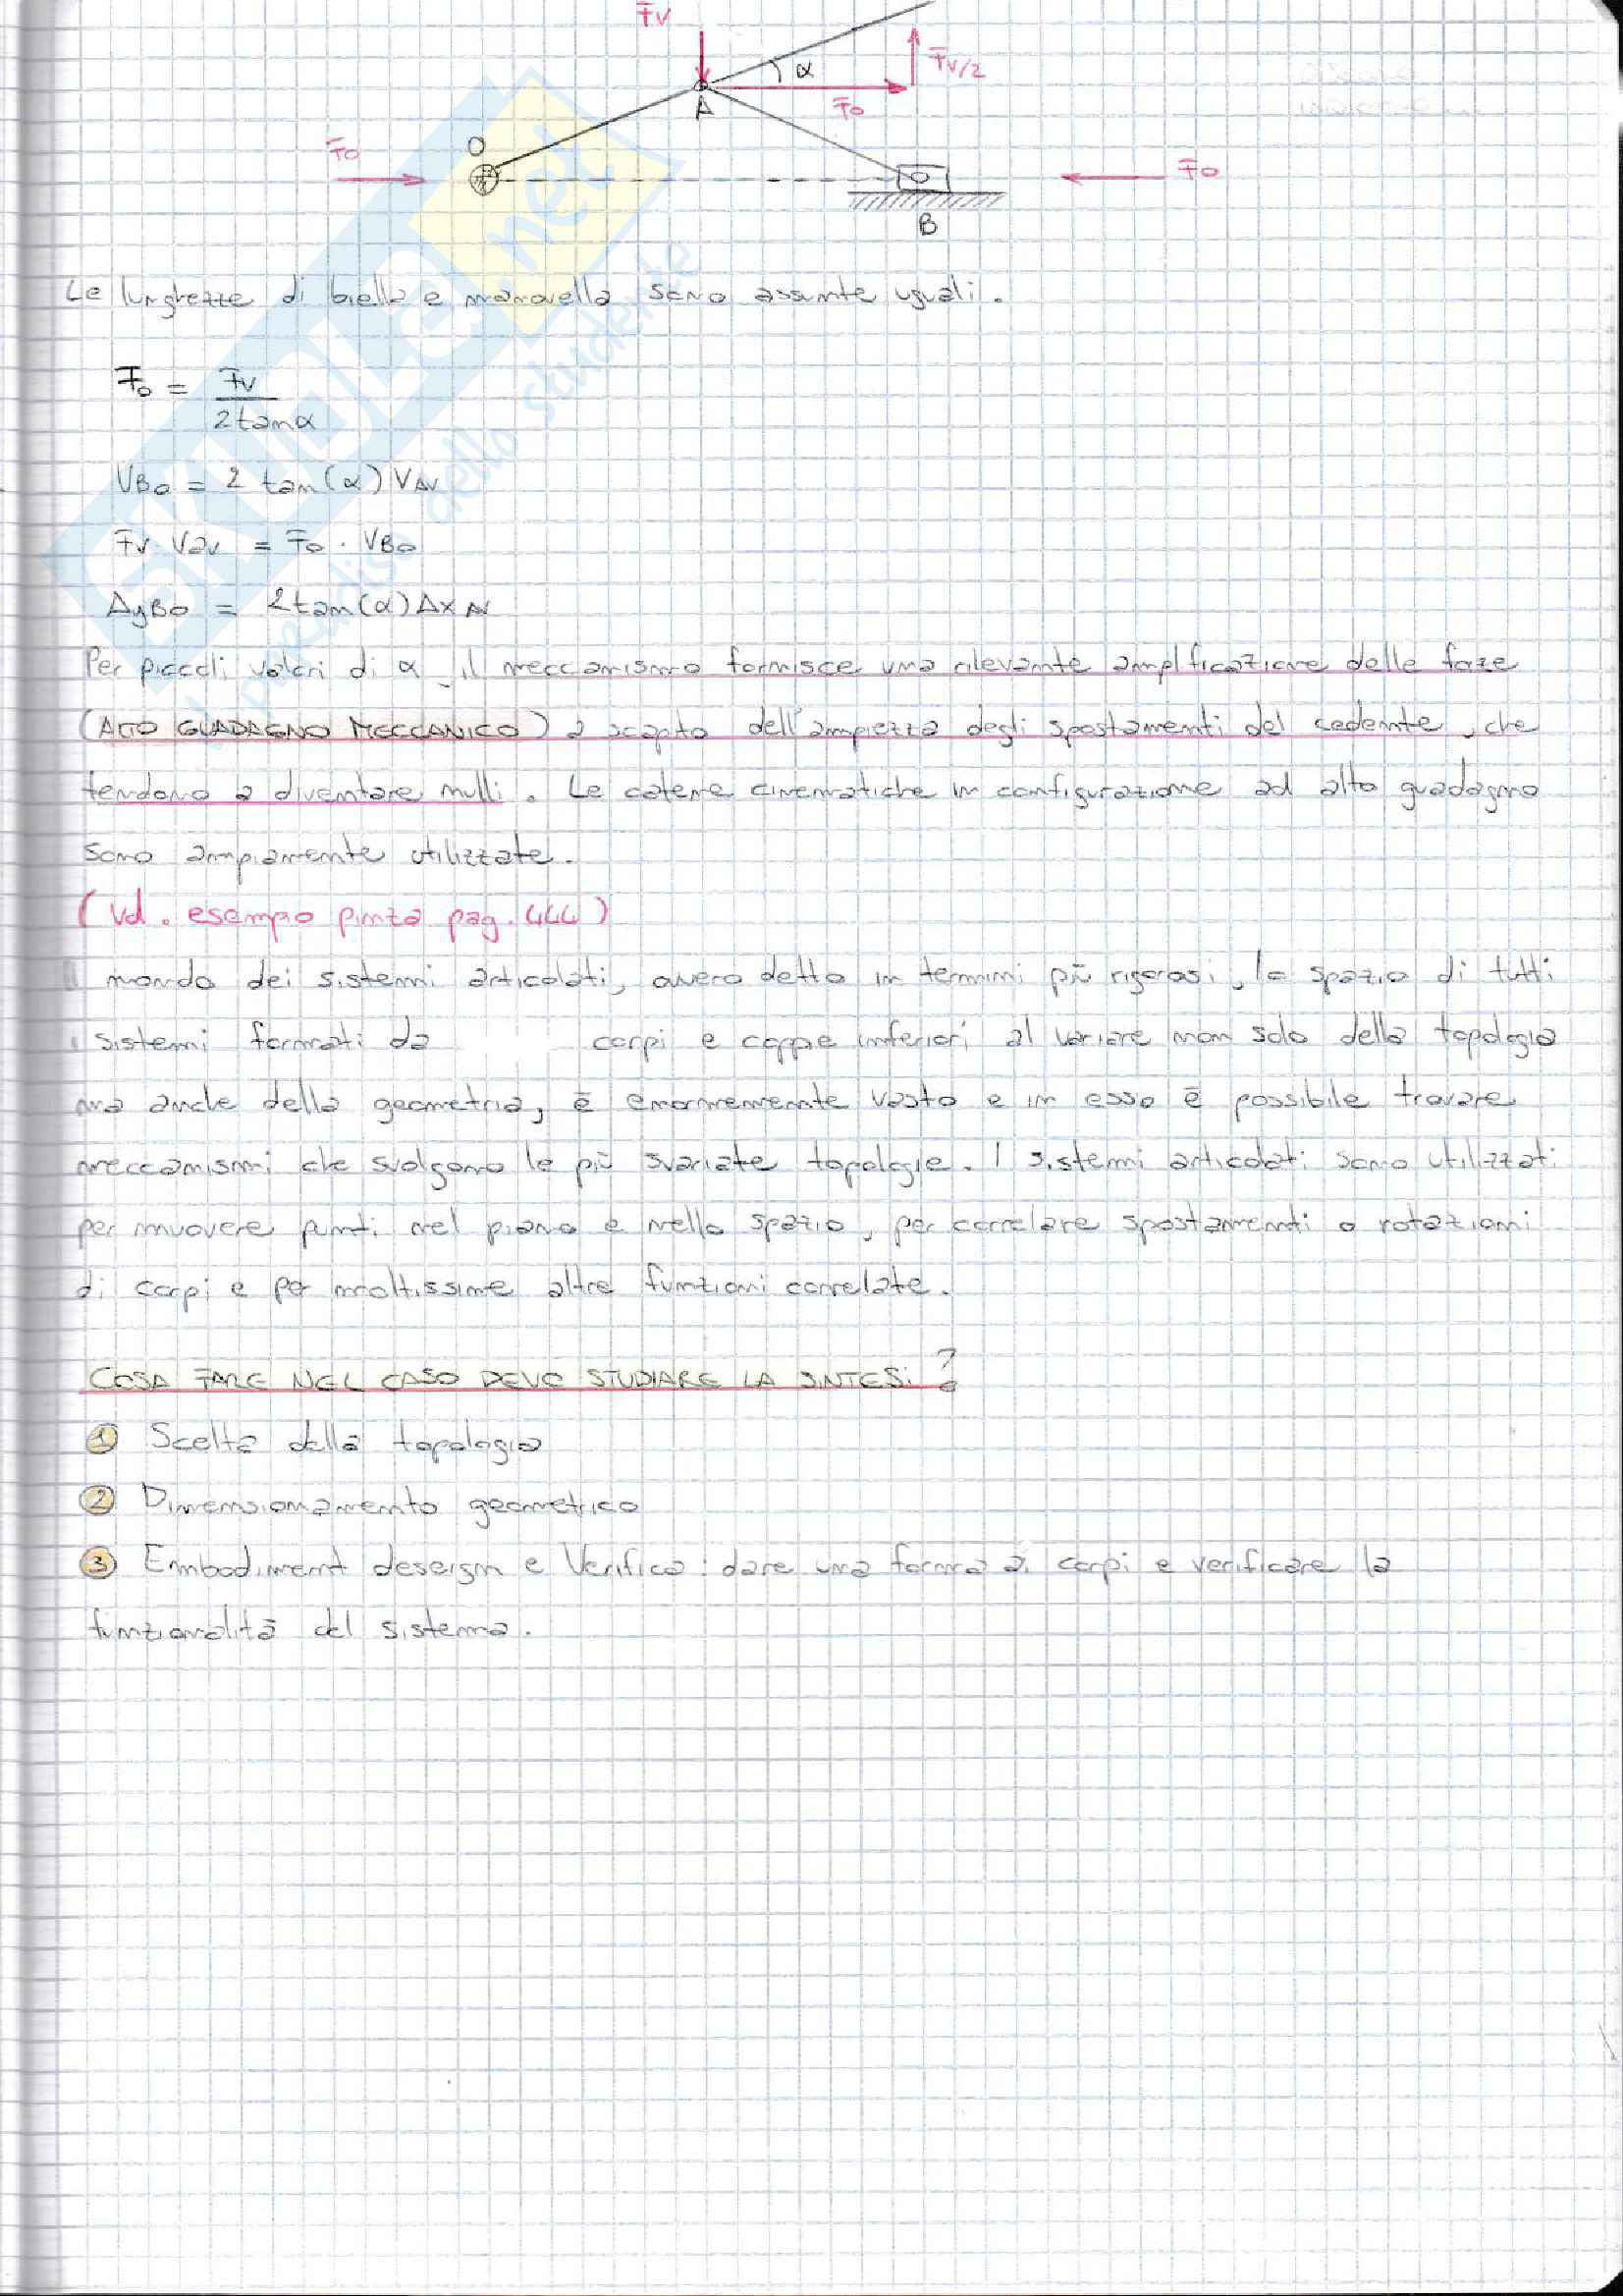 Fv
α
Fv/2
A
Fo
O
Fo
Fo
B
Le lunghezze di biella e manovella sono assunte uguali.
Fo = Fv / 2tanα
VBo = 2 tan(α) VAv
Fv · Vav = Fo · VBo
ΔyBo = 2tan(α)Δx Av
Per piccoli valori di α, il meccanismo fornisce una rilevante amplificazione delle forze
(ALTO GUADAGNO MECCANICO) a scapito dell'ampiezza degli spostamenti del cedente, che
tendono a diventare nulli. Le catene cinematiche in configurazione ad alto guadagno
sono ampiamente utilizzate.
(Vd. esempio pinza pag. 444)
Il mondo dei sistemi articolati, ovvero detto in termini più rigorosi, lo spazio di tutti
i sistemi formati da corpi e coppie inferiori al variare non solo della topologia
ma anche della geometria, è enormemente vasto e in esso è possibile trovare
meccanismi che svolgono le più svariate topologie. I sistemi articolati sono utilizzati
per muovere punti nel piano e nello spazio, per correlare spostamenti o rotazioni
di corpi e per moltissime altre funzioni correlate.
COSA FARE NEL CASO DEVO STUDIARE LA SINTESI?
1 Scelta della topologia
2 Dimensionamento geometrico
3 Embodiment deseign e Verifica: dare una forma ai corpi e verificare la
funzionalità del sistema.
SKUOLA.net
dello studente